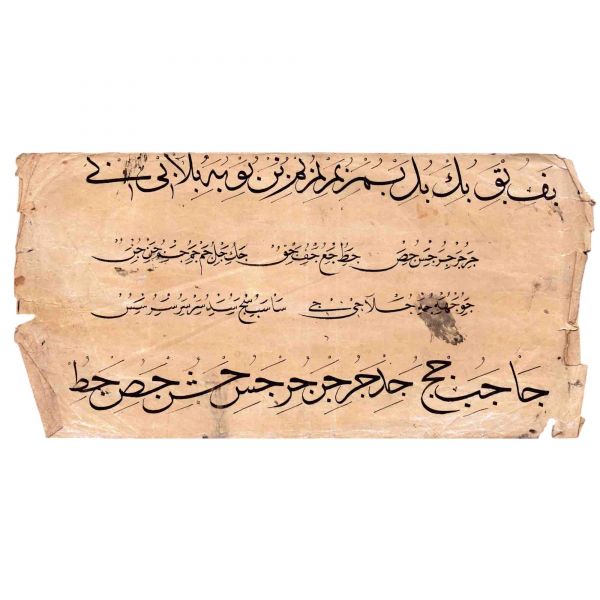 بف بق بك بل بم بم بم بن بن بو به بلا بى بى
جر جر جر جس جص جط جع جف جق جك جل جم جم جم جن جن
جو جهه جه جلا جى جى سا سب سج سد سر سر سر سس
جا جب جج جد جر جر جر جس جش جص جط